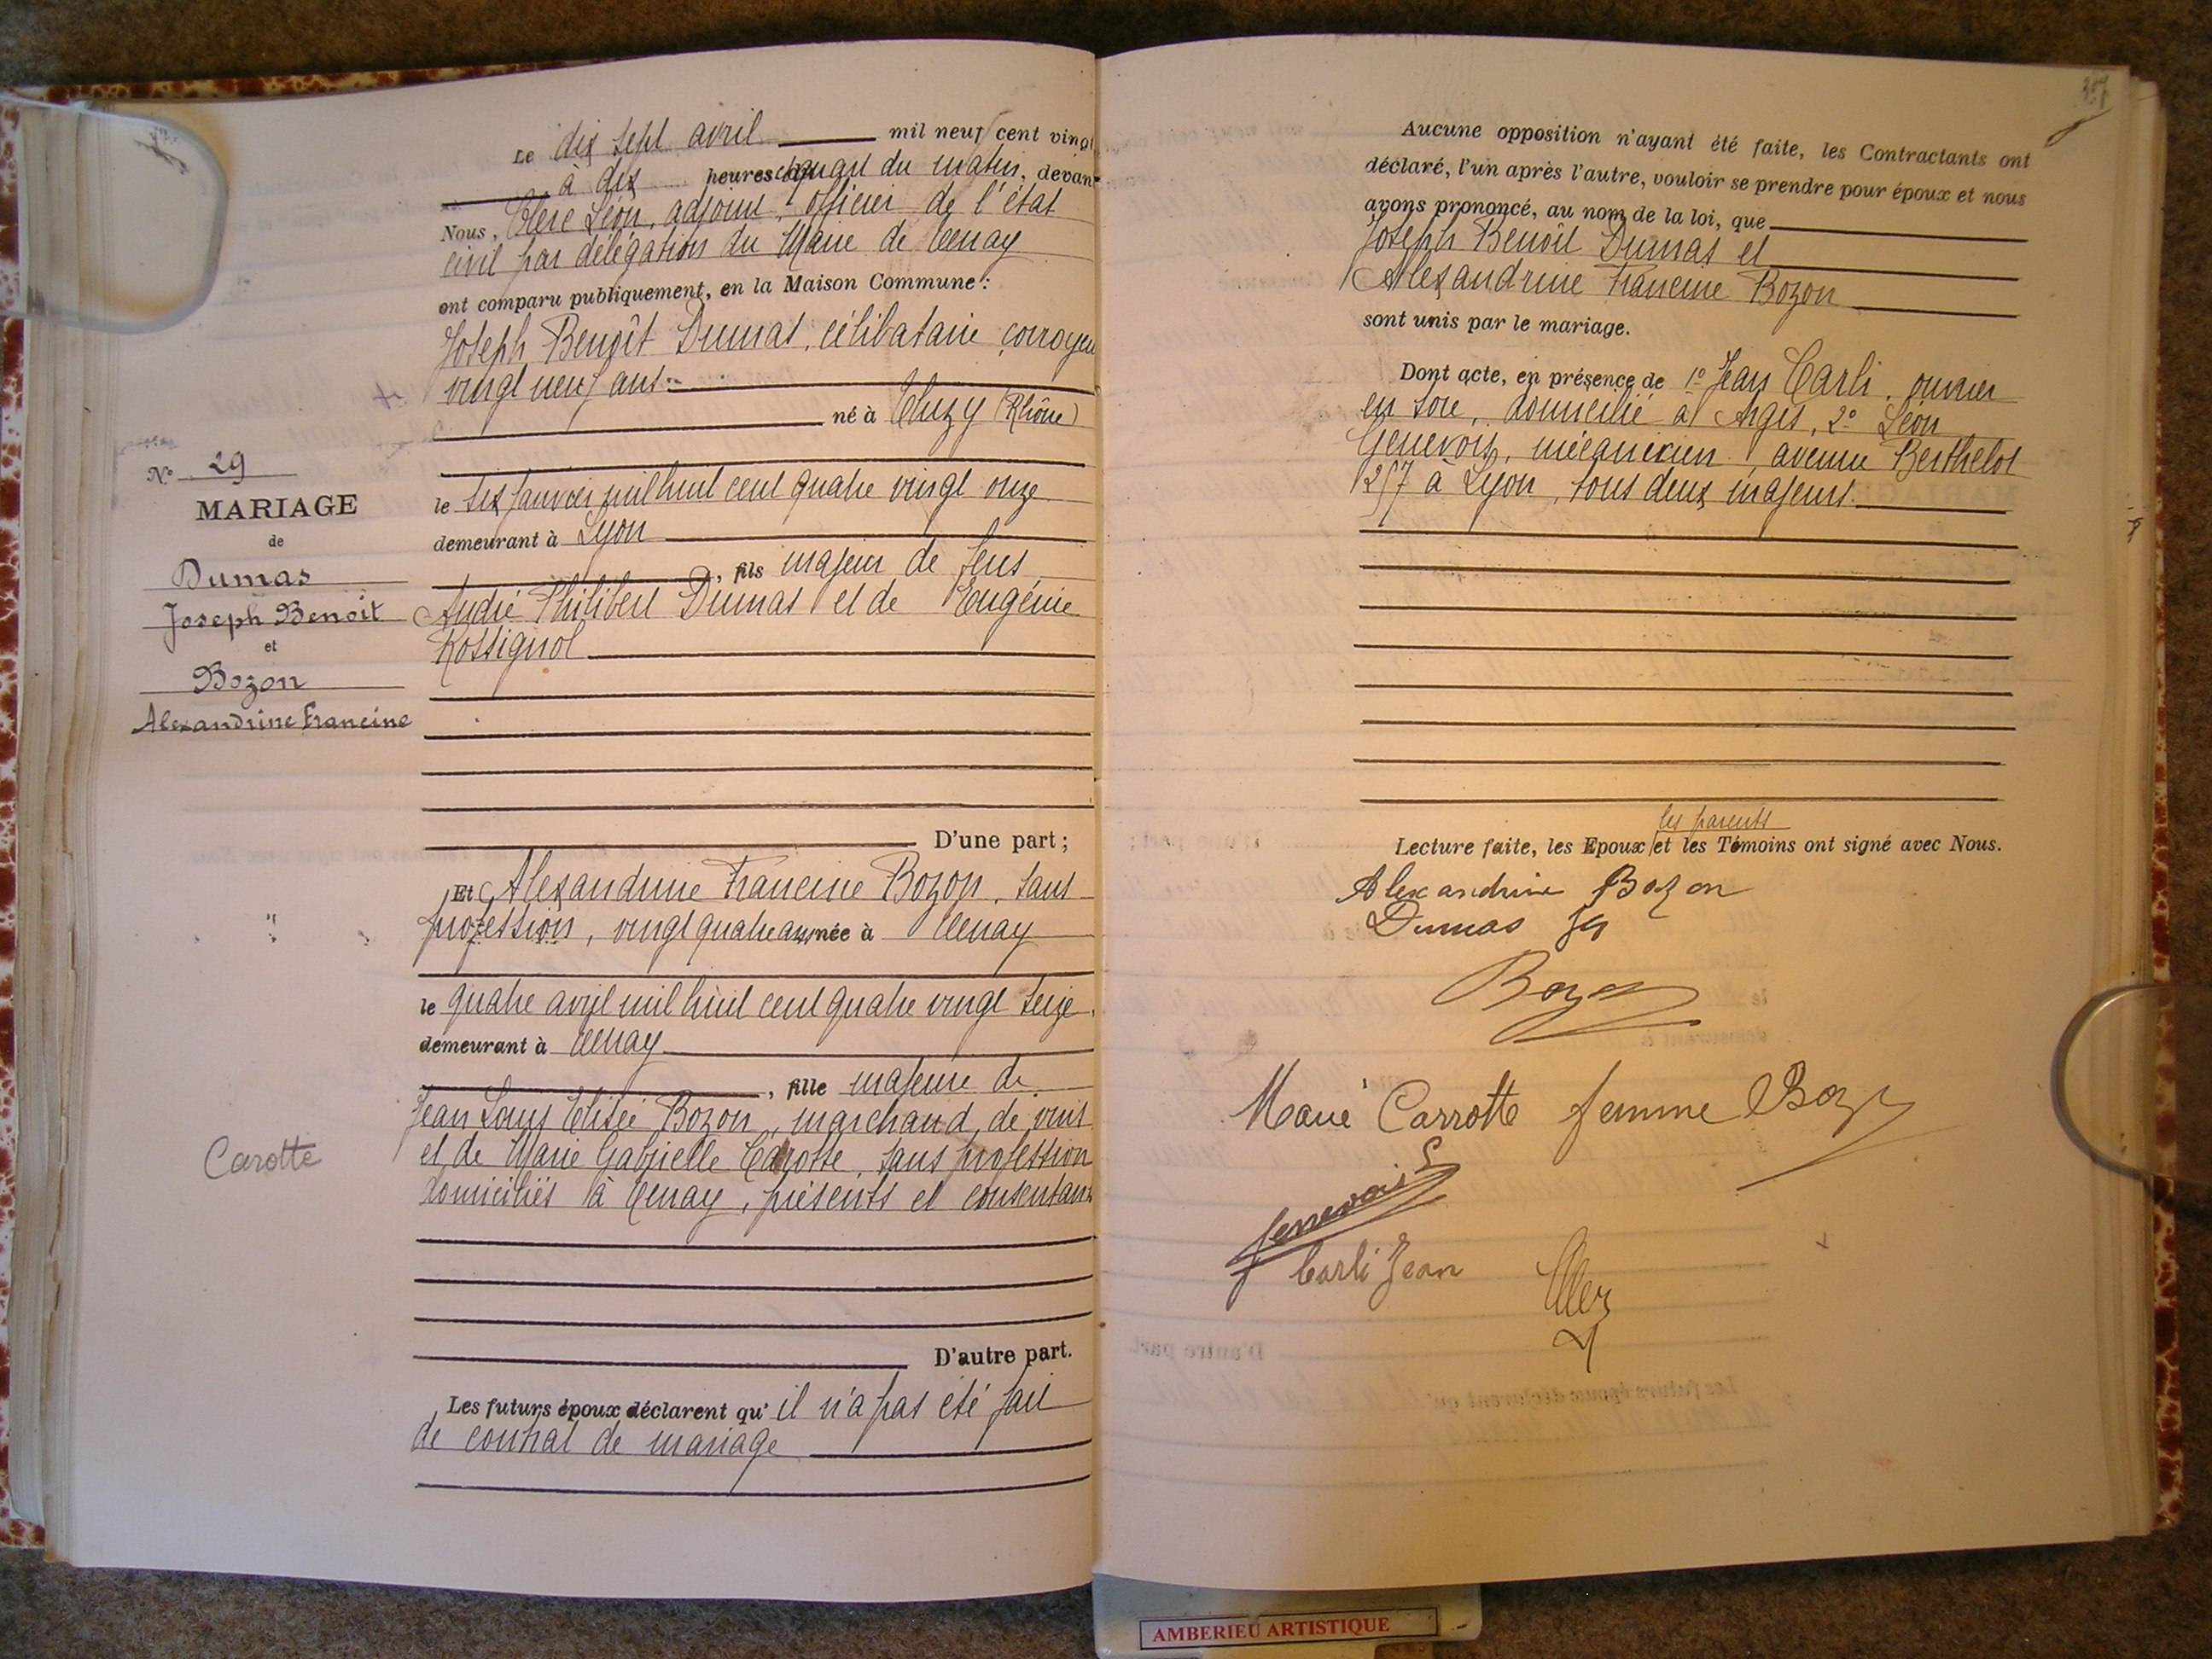 Le dix sept avril mil neuf cent vingt
à dix heures et quart du matin, devant
Nous, Clerc Léon, adjoint, officier de l'état
civil par délégation du Maire de Tenay
ont comparu publiquement, en la Maison Commune :
Joseph Benoît Dumas, célibataire, corroyeur
vingt neuf ans
né à Thizy (Rhône)
le six janvier mil huit cent quatre vingt onze
demeurant à Lyon
, fils majeur de feus
André Philibert Dumas et de Eugénie
Rossignol
D'une part ;
Et Alexandrine Francine Bozon, sans
profession, vingt quatre ans, née à Tenay
le quatre avril mil huit cent quatre vingt seize
demeurant à Tenay
, fille majeure de
Jean Louis Elisée Bozon, marchand de vins
et de Marie Gabrielle Carotte, sans profession
domiciliés à Tenay, présents et consentants
D'autre part.
Les futurs époux déclarent qu'il n'a pas été fait
de contrat de mariage
N° 29
MARIAGE
de
Dumas
Joseph Benoit
et
Bozon
Alexandrine Francine
Carotte
307
Aucune opposition n'ayant été faite, les Contractants ont
déclaré, l'un après l'autre, vouloir se prendre pour époux et nous
avons prononcé, au nom de la loi, que
Joseph Benoît Dumas et
Alexandrine Francine Bozon
sont unis par le mariage.
Dont acte, en présence de 1° Jean Carli, ouvrier
en soie, domicilié à Argis, 2° Léon
Genevois, mécanicien, avenue Berthelot
257 à Lyon, tous deux majeurs.
les parents
Lecture faite, les Epoux et les Témoins ont signé avec Nous.
Alexandrine Bozon
Dumas
Bozon
Marie Carrotte femme Bozon
Genevois
Carli Jean
Clerc
AMBERIEU ARTISTIQUE